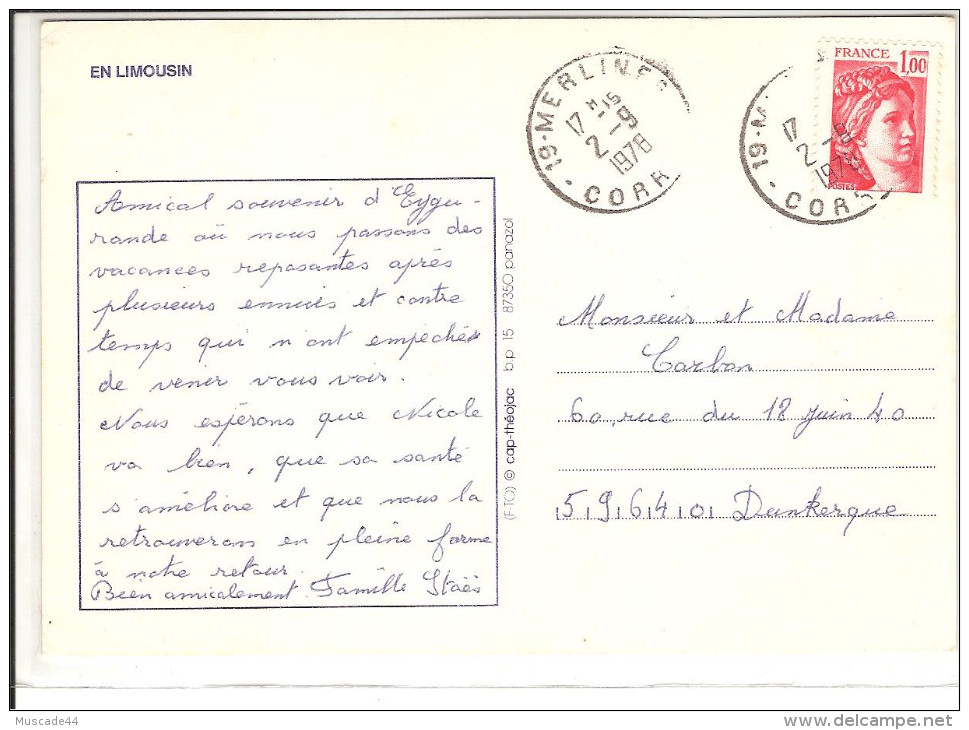 EN LIMOUSIN
19·MERLINES
17 H 15
2-8
1978
·CORR
19·M
17
2-8
1978
·CORR
FRANCE
1,00
POSTES
Amical souvenir d'Eygu-
rande où nous passons des
vacances reposantes après
plusieurs ennuis et contre
temps qui n'ont empêchés
de venir vous voir.
Nous espérons que Nicole
va bien, que sa santé
s'améliore et que nous la
retrouverons en pleine forme
à notre retour.
Bien amicalement Famille Staës
(F-TO) © cap-théojac b.p. 15 87350 panazol
Monsieur et Madame
Carbon
60, rue du 18 Juin 40
59640 Dunkerque
Muscade44
delcampe.net